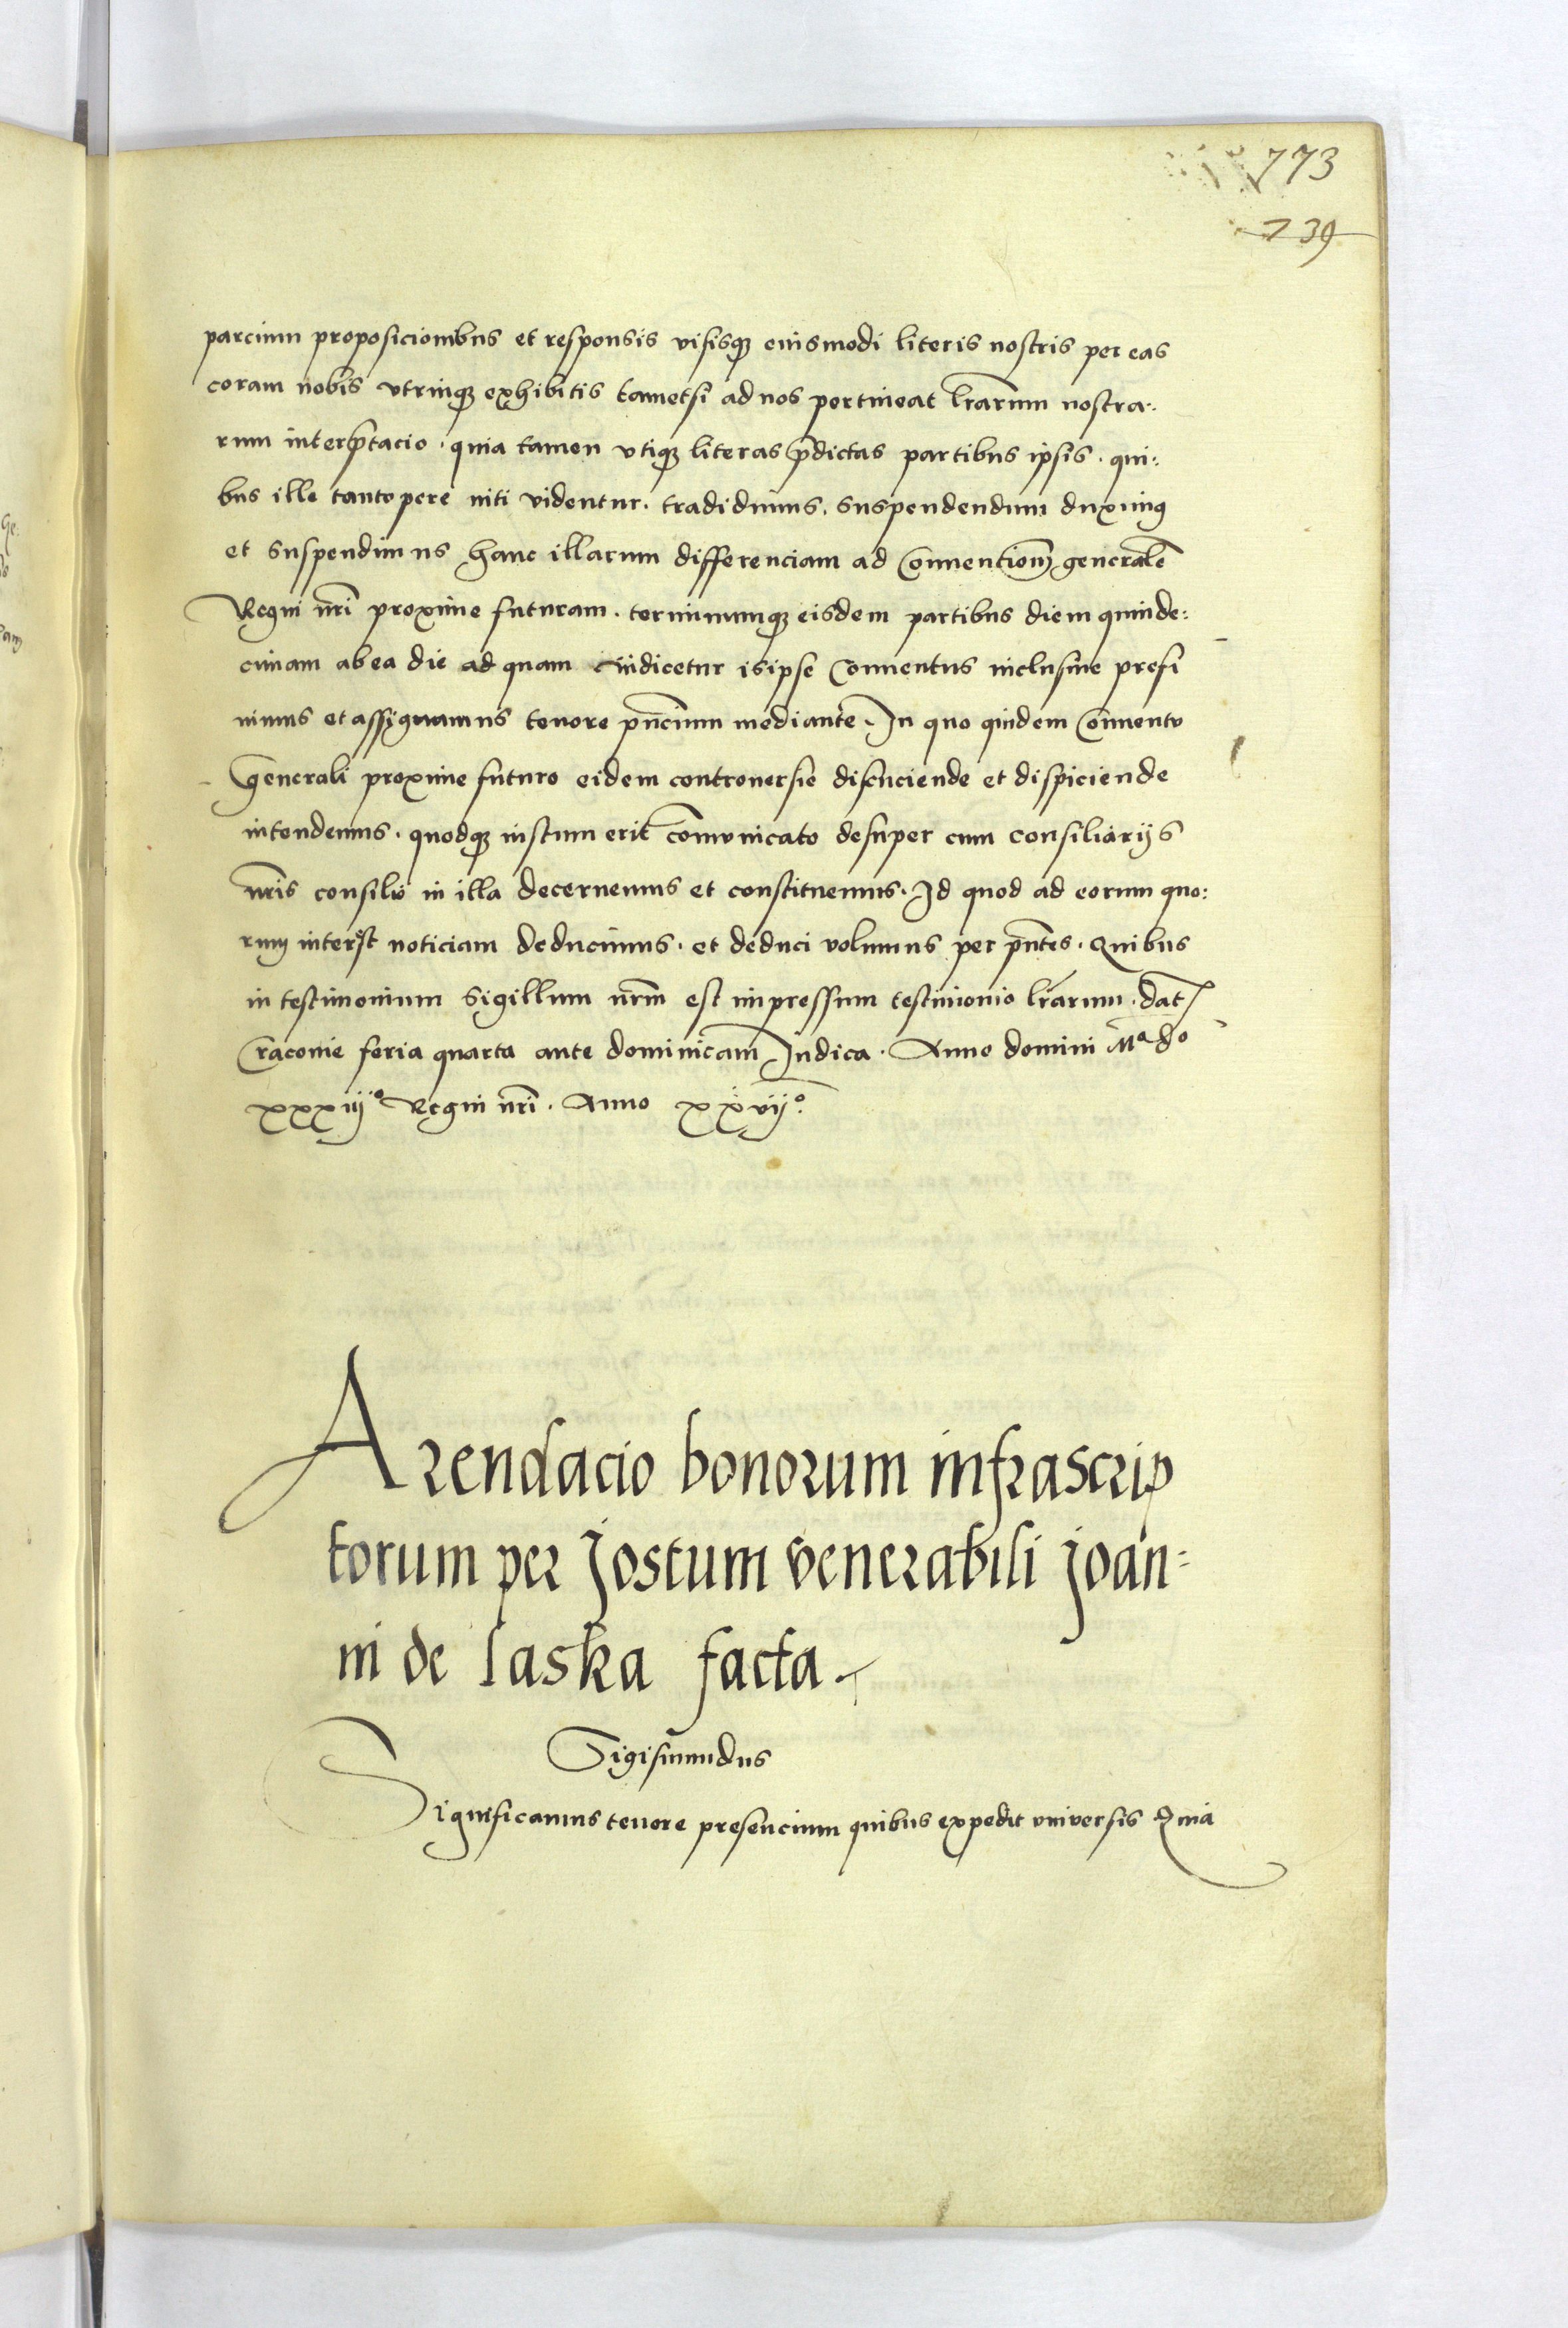 773
739
parcium proposicionibus et responsis visisqꝫ eiusmodi literis nostris per eas
coram nobis vtrinqꝫ exhibitis tametsi ad nos pertineat lr̄arum nostra:
rum interp̄tacio. quia tamen vtiqꝫ literas p̄dictas partibus ipsis. qui:
bus ille tantopere niti videntur. tradidimus. suspendendum duximus
et suspendimus hanc illarum differenciam ad Conuentionē generalē
Regni nr̄i proxime futuram. terminumqꝫ eisdem partibus diem quinde:
cimam ab ea die ad quam indicetur is ipse Conuentus inclusiue prefi
nimus et assygnamus tenore pn̄cium mediante. In quo quidem Conuentu
Generali proxime futuro eidem controuersie discuciende et dispiciende
intendemus. quodqꝫ iustum erit com̄unicato desuper cum consiliarijs
nr̄is consilio in illa decernemus et constituemus. Id quod ad eorum quo:
rum interest noticiam deducimus. et deduci volumus per pn̄tes. Quibus
in testimonium sigillum nr̄m est impressum testimonio lr̄arum. dat̄
Cracouie feria quarta ante dominicam Judica. Anno domini Mº dº
xxxiijº Regni nr̄i. Anno xxvijº.
Arendacio bonorum infrascrip
torum per Jostum venerabili joan=
ni de laska facta.
Sigismundus
Significamus tenore presencium quibus expedit vniversis Quia